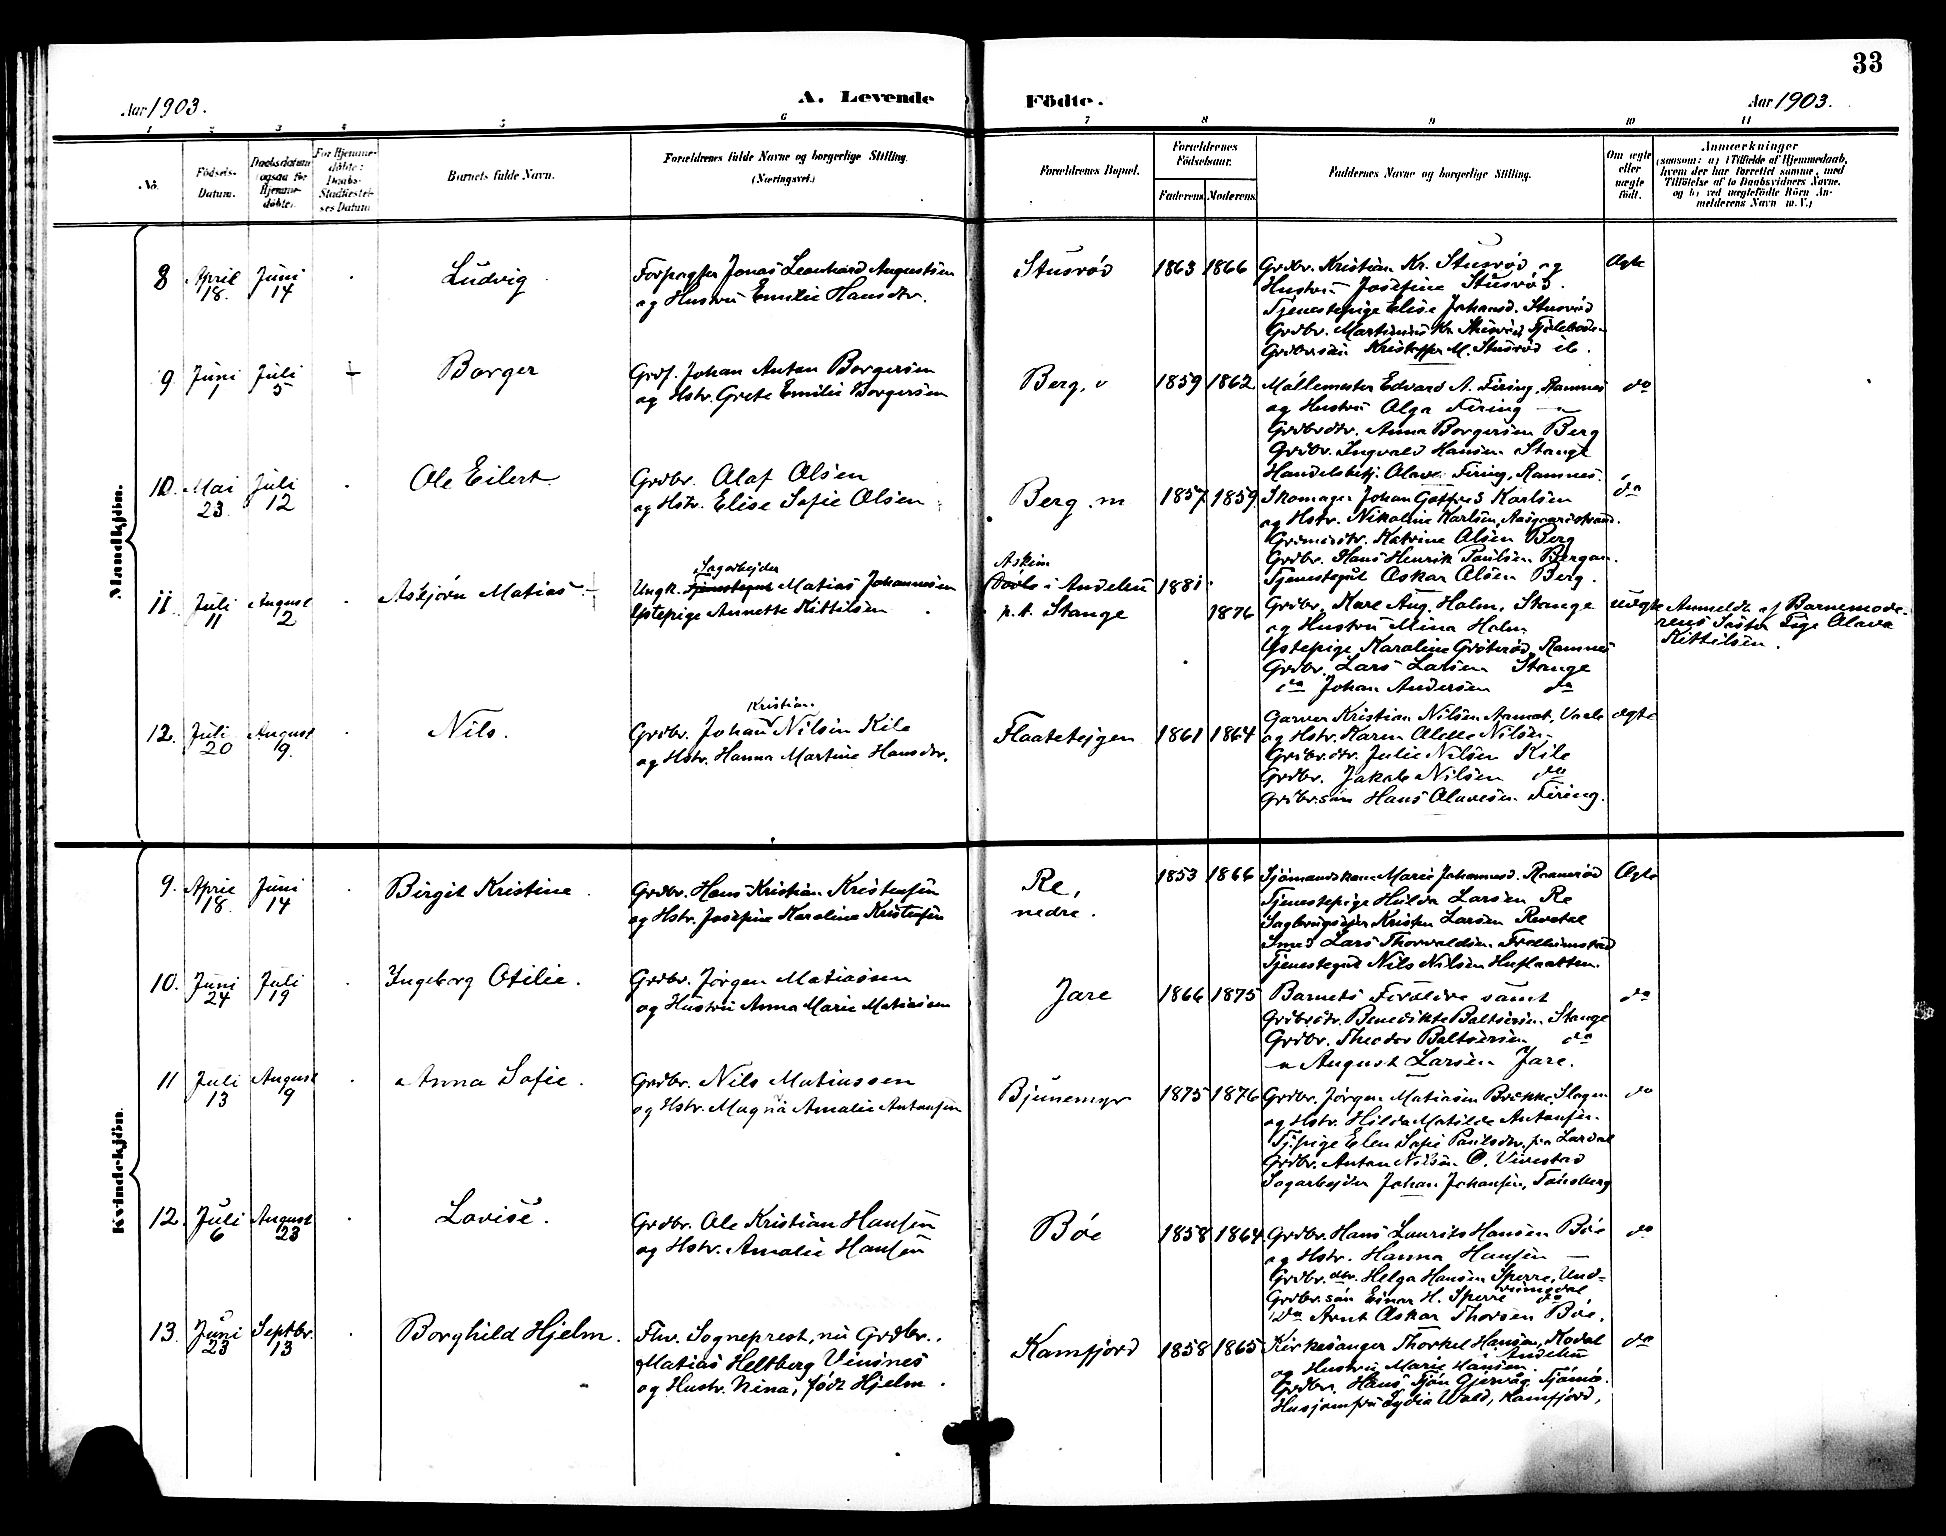 33
Aar 1903.
A. Levende
Födte.
Aar 1903.
1 2 3 4 5 6 7 8 9 10 11
No.
Födsels-
Datum.
Daabsdatum
(ogsaa for
Hjemme-
döbte).
For Hjemme-
döbte:
Daabs-
Stadfæstel-
ses Datum.
Barnets fulde Navn.
Forældrenes fulde Navne og borgerlige Stilling.
(Næringsvei.)
Forældrenes Bopæl.
Forældrenes
Födselsaar.
Faderens Moderens
Faddernes Navne og borgerlige Stilling.
Om ægte
eller
uægte
födt.
Anmærkninger
(saasom: a) i Tilfælde af Hjemmedaab,
hvem der har forrettet samme, med
Tilföielse af to Daabsvidners Navne,
og b) ved uægtefödte Börn An-
melderens Navn m. V.)
Mandkjön.
8
April
18.
Juni
14
Ludvig
Forpagter Jonas Leonhard Augustsen
og Hustru Emilie Hansdtr.
Stusrød
1863 1866
Grdbr. Kristian Kr. Stusrød og
Hustru Josefine Stusrød.
Tjenestepige Elise Johansd. Stusrød
Grdbr. Martinius Kr. Stusrød,
Grdbrsøn Kristoffer M. Stusrød ib.
Ægte
9
Juni
1
Juli
5
Borger
Grdf. Johan Anton Borgersen
og Hstr. Grete Emilie Borgersen
Berg, v
1859 1862
Møllemester Edvard A. Firing, Ramnes
og Hustru Olga Firing — "
Grdbrdtr. Anna Borgersen Berg
Grdbr. Ingvald Hansen Stange
Handelsbetj. Olav Firing, Ramnes.
do
10.
Mai
23
Juli
12
Ole Eilert
Grdbr. Olaf Olsen
og Hstr. Elise Sofie Olsen
Berg. m
1857 1859
Skomager Johan Gotfred Karlsen
og Hstr. Nikoline Karlsen, Aasgaardstrand.
Katrine Olsen Berg
Grdbr. Hans Henrik Paulsen Bergan
Tjenestegut Oskar Olsen Berg.
do
11.
Juli
11
August
2
Asbjørn Matias
Sagarbejder
Ungk. Tjenestegut Matias Johannesen
Ystepige Annette Kittilsen
Askim
i Andebu
p.t. Stange
1881
1876
Grdbr. Kare Aug. Holm, Stange
og Hustru Mina Holm
Ystepige Karoline Grøterød, Ramnes
Grdbr. Lars Larsen Stange
do Johan Andersen do
Uægte
Anmeldt af Barnemode-
rens Søster Pige Olava
Kittilsen.
12.
Juli
20
August
9.
Nils.
Kristian
Grdbr. Johan Nilsen Kile
og Hstr. Hanna Martine Hansdtr.
Flaatetejgen
1861 1864
Garver Kristian Nilsen Aamot, Vaale
og Hstr. Karen Olette Nilsen
Grdbrdtr. Julie Nilsen Kile
Grdbr. Jakob Nilsen do
Grdbr.søn Hans Olavesen Firing.
Ægte
Kvindekjön.
9.
April
18.
Juni
14
Birgit Kristine.
Grdbr. Hans Kristian Kristensen
og Hstr. Josefine Karoline Kristensen
Re,
nedre.
1853 1866
Sjömandskone Marie Johannesd.
Tjenestepige Hulda Larsen Re
Kristen Larsen Revetal
Smed Lars Thorvaldsen
Tjenestegut Nils Nilsen
Ægte
10.
Juni
24
Juli
19
Ingeborg Otilie.
Grdbr. Jørgen Matiassen
og Hustru Anna Marie Matiassen
Jare
1866 1875
Barnets Foreldre samt
Grdbrdtr. Benedikte Baltsersen Stange
Grdbr. Theodor Baltsersen do
" August Larsen Jare.
do
11
Juli
13
August
9
Anna Sofie.
Grdbr. Nils Matiassen
og Hstr. Magna Amalie Antonsen
Bjunemyr
1875 1876
Grdbr. Jørgen Matiasen Bække, Slagen
og Hstr. Hilda Matilde Antonsen.
Tj.pige Elen Sofie Paulsdtr. fra Lardal
Grdbr. Anton Nilsen Ø. Vivestad
Sagarbejder Johan Johansen, Tønsberg
do
12.
Juli
6
August
23
Lovise.
Grdbr. Ole Kristian Hansen
og Hstr. Amalie Hansen
Bøe
1858 1864
Grdbr. Hans Laurits Hansen Bøe
og Hstr. Hanna Hansen —
Grdbr. dtr. Helga Hansen Sperre, Und-
rumsdal
Grdbr.søn Einar H. Sperre do
do Arnt Oskar Thorsen Bøe.
do
13.
Juni
23
Septbr.
13
Borghild Hjelm.
Fhv. Sogneprest, nu Grdbr.
Matias Heltberg Vinsnes
og Hustr. Nina, født Hjelm.
Kamfjord
1858 1865
Kirkesanger Thorkel Hansen, Kodal
i Andebu
og Hustru Marie Hansen.
Grdbr. Hans Tjøn Gjervåg Tjømø.
Husjomfru Lydia Wold, Kamfjord,
do